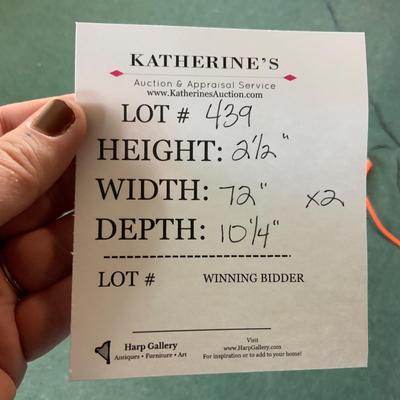 KATHERINE'S
Auction & Appraisal Service
www.KatherinesAuction.com
LOT # 439
HEIGHT: 2 1/2"
WIDTH: 72" x2
DEPTH: 10 1/4"
LOT # WINNING BIDDER
Harp Gallery
Antiques • Furniture • Art
Visit
www.HarpGallery.com
For inspiration or to add to your home!